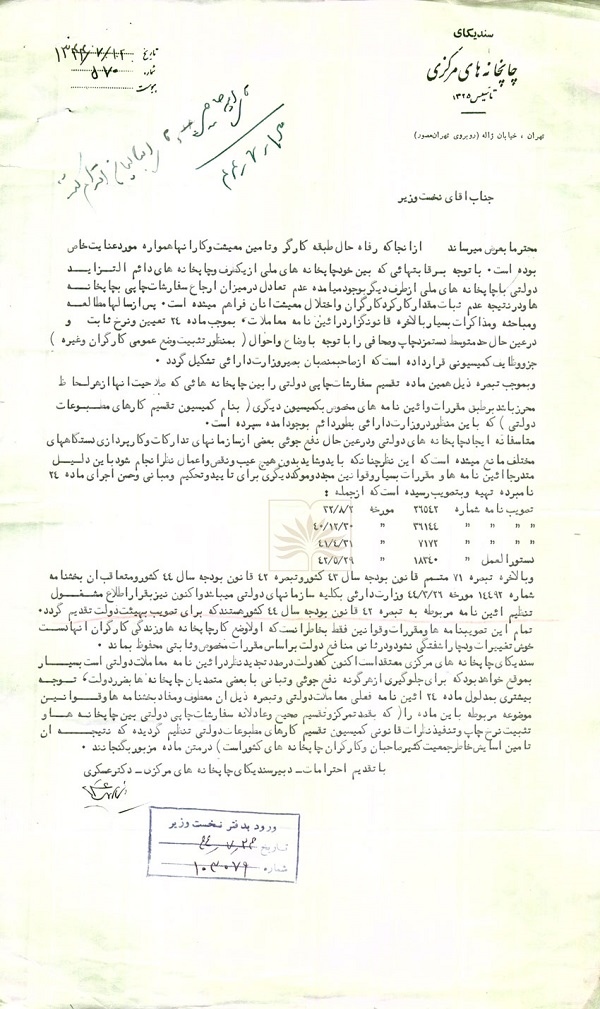 سندیکای
چاپخانه های مرکزی
تأسیس ۱۳۲۵
تهران ، خیابان ژاله (روبروی تهران‌مصور)
تاریخ ۱۳۴۴/۷/۱۲
شماره ۵۷۰
پیوست
جناب آقای نخست وزیر
محترما بعرض میرساند ازآنجاکه رفاه حال طبقه کارگر و تامین معیشت وکارآنها همواره موردعنایت خاص
بوده است ۰ با توجه برقابتهائی که بین خودچاپخانه های ملی ازیکطرف وچاپخانه های دائم التزاید
دولتی باچاپخانه های ملی ازطرف دیگر بوجود میآمده عدم تعادل درمیزان ارجاع سفارشات چاپی بچاپخانه
ها ودرنتیجه عدم ثبات مقدارکارکرد کارگران واختلال معیشت آنان فراهم میشده است ۰ پس ازسالها مطالعه
ومباحثه ومذاکرات بسیار بالاخره قانونگزار درآئین نامه معاملات ۰ بموجب ماده ۲۴ تعیین ونرخ ثابت و
درعین حال حد متوسط دستمزد چاپ وصحافی را با توجه باوضاع واحوال ( بمنظور تثبیت وضع عمومی کارگران وغیره )
جزو وظایف کمیسیونی قرارداده است که ازصاحبمنصبان بصیر وزارت دارائی تشکیل گردد ۰
وبموجب تبصره ذیل همین ماده تقسیم سفارشات چاپی دولتی را بین چاپخانه هائی که صلاحیت آنها ازهر لحاظ
محرز باشد برطبق مقررات وآئین نامه های مخصوص بکمیسیون دیگری ( بنام کمیسیون تقسیم کارهای مطبوعات
دولتی ) که باین منظور دروزارت دارائی بطور دائم بوجود آمده سپرده است ۰
متاسفانه ایجاد چاپخانه های دولتی ودرعین حال نفع جوئی بعضی ازسازمانهای تدارکات وکارپردازی دستگاههای
مختلف مانع میشده است که این نظرچنانکه باید وشاید بدون هیچ عیب ونقص واعمال نظر انجام شود باین دلیل
متدرجا آئین نامه ها و مقررات بسیار وقوانین مجدد وموکد دیگری برای تایید وتحکیم ومبانی وحسن اجرای ماده ۲۴
نامبرده تهیه وبتصویب رسیده است که ازجمله :
تصویب نامه شماره ۲۶۵۴۲ مورخه ۳۲/۸/۲
” ” ” ” ۳۶۱۴۴ ” ۴۰/۱۲/۳۰
” ” ” ” ۷۱۷۲ ” ۴۱/۴/۳۱
دستورالعمل ” ۱۸۳۴۰ ” ۴۲/۵/۲۹
وبالاخره تبصره ۷۱ متمم قانون بودجه سال ۴۳ کشور وتبصره ۴۲ قانون بودجه سال ۴۴ کشور ومتعاقب آن بخشنامه
شماره ۱۴۴۹۲ مورخه ۴۴/۳/۲۶ وزارت دارائی بکلیه سازمانهای دولتی میباشد واکنون نیز بقرار اطلاع مشغول
تنظیم آئین نامه مربوطه به تبصره ۴۲ قانون بودجه سال ۴۴ کشور هستند که برای تصویب بهیئت دولت تقدیم گردد۰
تمام این تصویبنامه ها ومقررات وقوانین فقط بخاطر آنست که اولا وضع کار چاپخانه ها وزندگی کارگران آنها دست
خوش تغییرات ودچار آشفتگی نشود ودرثانی منافع دولت براساس مقررات مخصوص وثابتی محفوظ بماند ۰
سندیکای چاپخانه های مرکزی معتقد است اکنون که دولت درصدد تجدید نظر درآئین نامه معاملات دولتی است بسیار
بموقع خواهد بود که برای جلوگیری ازهرگونه نفع جوئی وتبانی با بعضی متصدیان چاپخانه ها بضرر دولت ۰ توجه
بیشتری بمدلول ماده ۲۴ آئین نامه فعلی معاملات دولتی وتبصره ذیل آن معطوف ومفاد بخشنامه ها وقوانین
موضوعه مربوطه باین ماده را( که بقصد تمرکز وتقسیم صحیح وعادلانه سفارشات چاپی دولتی بین چاپخانه ها و
تثبیت نرخ چاپ وتنفیذ نظرات قانونی کمیسیون تقسیم کارهای مطبوعات دولتی تنظیم گردیده که نتیجه آن
تامین آسایش خاطر جمعیت کثیر صاحبان وکارگران چاپخانه های کشوراست ) درمتن ماده مزبور بگنجانند ۰
با تقدیم احترامات ـ دبیر سندیکای چاپخانه های مرکزی ـ دکترعسکری
ورود بدفتر نخست وزیر
تاریخ ۴۴/۷/۲۴
شماره ۱۰۳۰۷۹